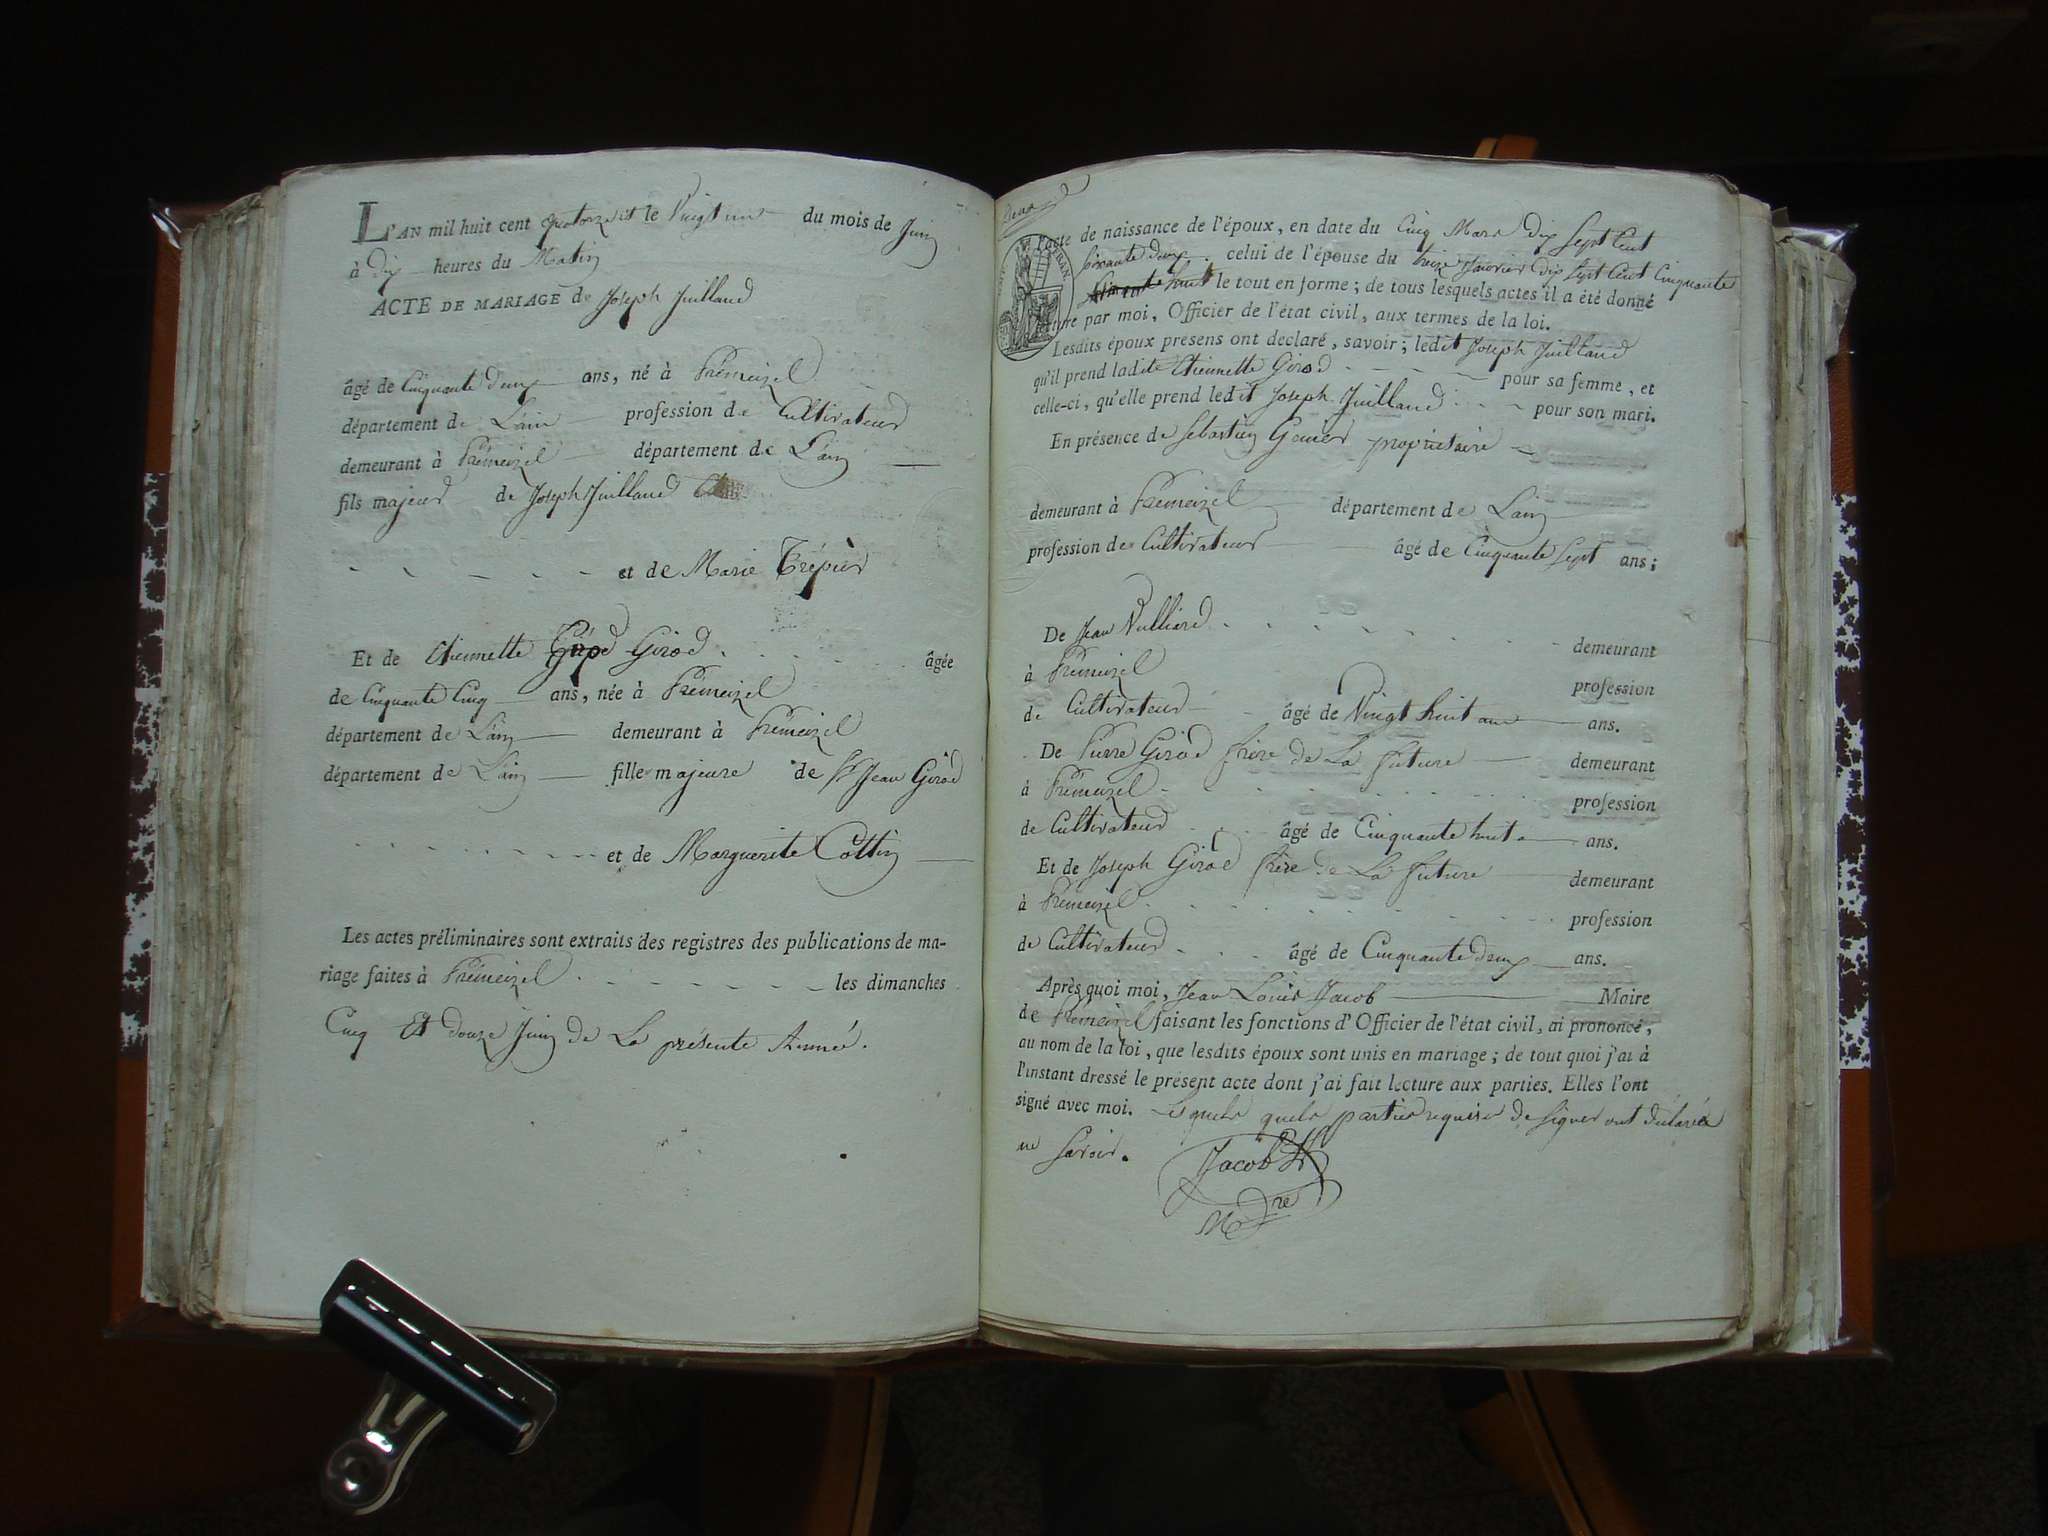 L'AN mil huit cent quatorze et le Vingt un du mois de Juin
à dix heures du Matin
ACTE DE MARIAGE de Joseph Juilland
âgé de Cinquante deux ans, né à Prémeizel
département de L'ain profession de Cultivateur
demeurant à Prémeizel département de L'ain
fils majeur de Joseph Juilland
et de Marie Trépier
Et de Etiennette Girod âgée
de Cinquante Cinq ans, née à Prémeizel
département de L'ain demeurant à Prémeizel
département de L'ain fille majeure de Jean Girod
et de Marguerite Cottin
Les actes préliminaires sont extraits des registres des publications de ma-
riage faites à Prémeizel les dimanches
Cinq Et douze Juin de La présente Année.
Deux
l'acte de naissance de l'époux, en date du Cinq Mars dix Sept Cent
soixante deux celui de l'épouse du Janvier dix Sept Cent Cinquante
huit le tout en forme ; de tous lesquels actes il a été donné
lecture par moi, Officier de l'état civil, aux termes de la loi.
Lesdits époux présens ont declaré, savoir ; ledit Joseph Juilland
qu'il prend ladite Etiennette Girod pour sa femme, et
celle-ci, qu'elle prend ledit Joseph Juilland pour son mari.
En présence de Sebastien propriétaire
demeurant à Prémeizel département de L'ain
profession de Cultivateur âgé de Cinquante Sept ans ;
De Jean Vulliard demeurant
à Prémeizel profession
de Cultivateur âgé de Vingt huit ans ans.
De Pierre Girod frère de La future demeurant
à Prémeizel profession
de Cultivateur âgé de Cinquante huit ans.
Et de Joseph Girod frère de La future demeurant
à Prémeizel profession
de Cultivateur âgé de Cinquante deux ans.
Après quoi moi, Jean Louis Jacob Maire
de Prémeizel faisant les fonctions d'Officier de l'état civil, ai prononcé,
au nom de la loi, que lesdits époux sont unis en mariage ; de tout quoi j'ai à
l'instant dressé le présent acte dont j'ai fait lecture aux parties. Elles l'ont
signé avec moi. Lesquels quels parties requises de signer ont déclarés
ne Savoir.
Jacob
Mre